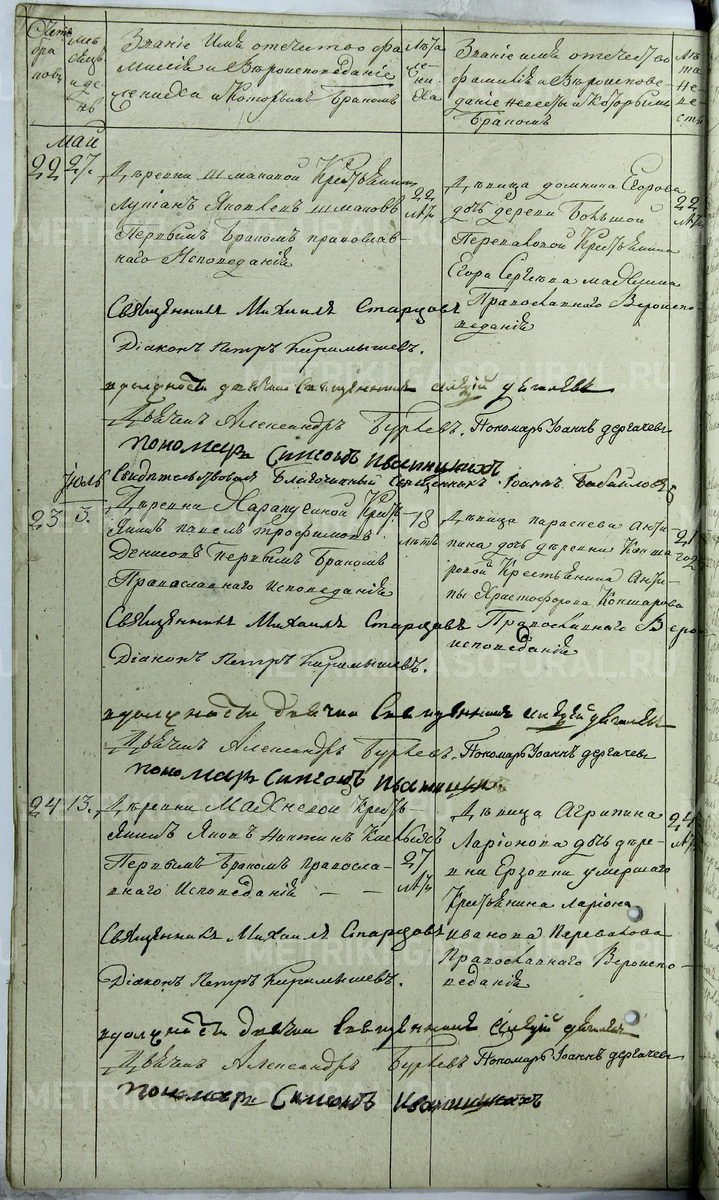 Счетъ браковъ
Мѣсяцъ и день
Званіе Имя отечество фа
милія и Вѣроисповѣданіе
жениха и Которымъ Бракомъ
Лѣта жениха
Званіе имя отечество
фамилія и Вѣроиспове
даніе невесты и Которымъ
Бракомъ
Лѣта Невесты
Май
22
27.
Деревни Шмаковой Крестьянинъ
Лупіанъ Яковлевъ Шмаковъ
Первымъ Бракомъ православ
наго Исповеданія
22
лѣтъ
Дѣвица домнина Егорова
дочь деревни Большой
Перваковой Крестьянина
Егора Сергеева
Православнаго Вероиспо
веданія
22
лѣтъ
Священникъ Михаилъ Старцовъ
Діаконъ Петръ Кирмышевъ.
вдолжности дьячка Священникъ
Дьячекъ Александръ Бурхевъ. Пономарь Іоаннъ дергачевъ
пономарь Симеонъ Иваницкихъ
Свидѣтельствовалъ Благочинный Священникъ Іоаннъ Бабайловъ
Іюль
23
3.
Деревни Кресть
янинъ павелъ трофимовъ
Денисовъ первымъ Бракомъ
Православнаго исповеданія
18
лѣтъ
Дѣвица параскева Анти
пина дочь деревни Кокша
ровой Крестьянина Анти
пы Христофорова Кокшарова
Православнаго Веро
исповеданія
21
Священникъ Михаилъ Старцовъ
Діаконъ Петръ Кирмышевъ.
вдолжности дьячка Священникъ
Дьячекъ Александръ Бурхевъ. Пономарь Іоаннъ дергачевъ
пономарь Симеонъ Иваницкихъ
24
13.
Деревни Махневой Кресть
янинъ Яковъ Никитинъ
Первымъ Бракомъ правосла
внаго Исповеданія — —
27
лѣтъ
Дѣвица Агрипина
Ларіонова дочь дере
вни Ерзовки умершаго
Крестьянина Ларіона
Иванова Перевалова
Православнаго Вероиспо
веданія
24
лѣтъ
Священникъ Михаилъ Старцовъ
Діаконъ Петръ Кирмышевъ.
вдолжности дьячка Священникъ
Дьячекъ Александръ Бурхевъ Пономарь Іоаннъ дергачевъ
пономарь Симеонъ Иваницкихъ
METRIKI.GASO-URAL.RU